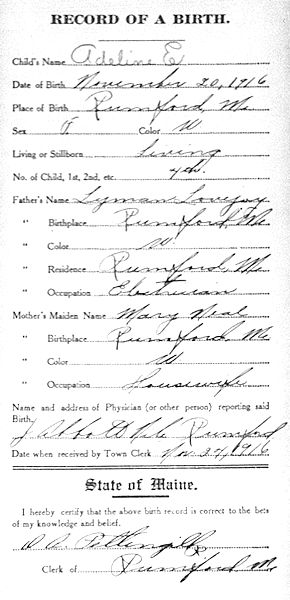 RECORD OF A BIRTH.
Child's Name Adeline E
Date of Birth November 20, 1916
Place of Birth Rumford, Me
Sex F Color W
Living or Stillborn Living
No. of Child, 1st, 2nd, etc. 4th.
Father's Name Lyman Lovejoy
" Birthplace Rumford, Me
" Color W
" Residence Rumford, Me
" Occupation Electrician
Mother's Maiden Name Mary Neal
" Birthplace Rumford, Me
" Color W
" Occupation Housewife
Name and address of Physician (or other person) reporting said
Birth, J Abbott Nile Rumford
Date when received by Town Clerk Nov 27, 1916
State of Maine.
I hereby certify that the above birth record is correct to the bets
of my knowledge and belief.
Pettengill
Clerk of Rumford Me